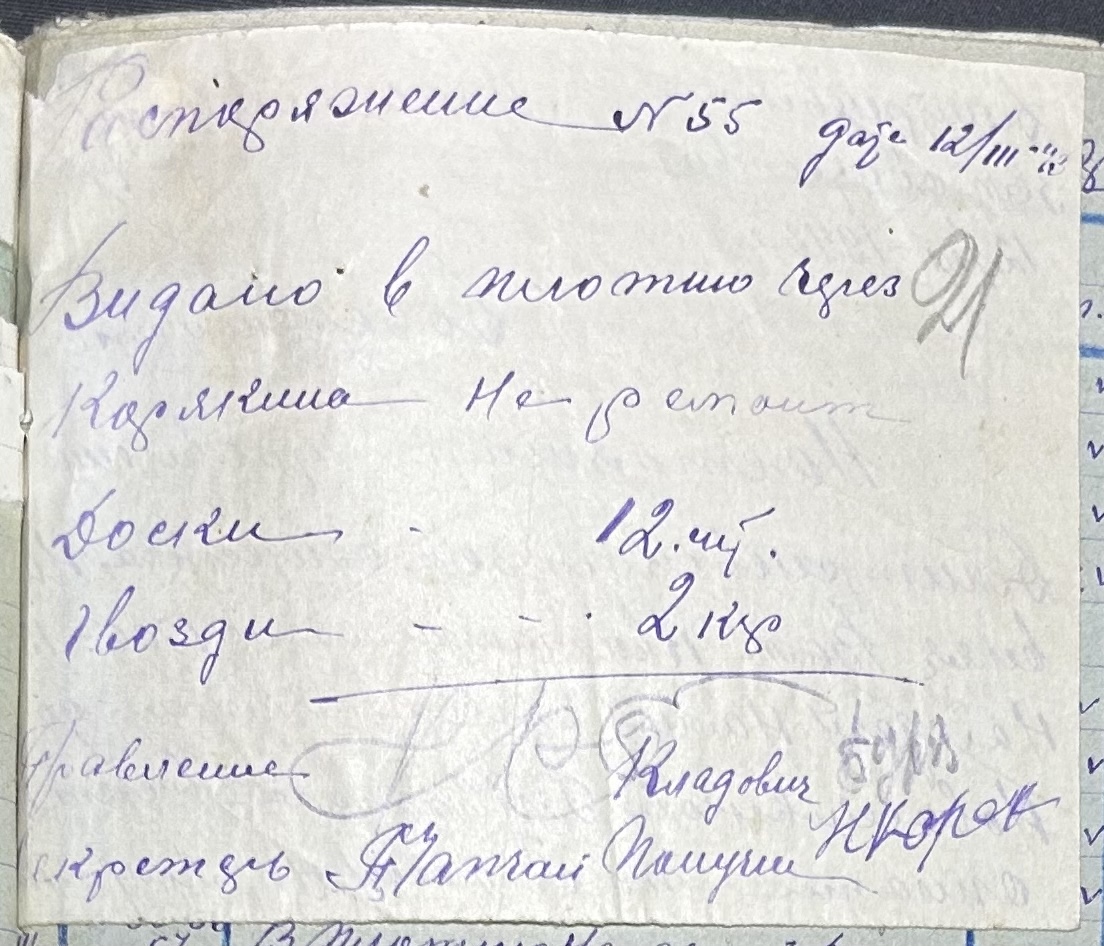 Распоряжение № 55 дата 12/III-42
Видано в плотню через 21
Корякина на ремонт
Доски - 12.шт.
Гвозди - - . 2 кгр
Правление Кладович
Секретарь Получил НКоряк